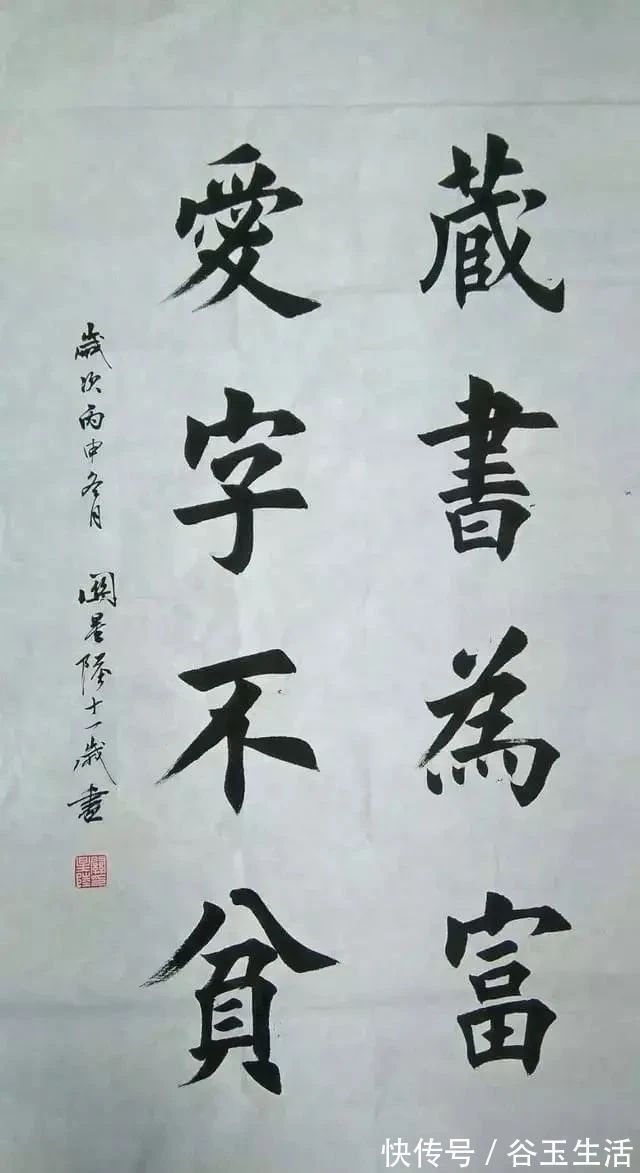 藏書為富
愛字不貧
歲次丙申冬月 關星陸十一歲書
快传号/谷玉生活